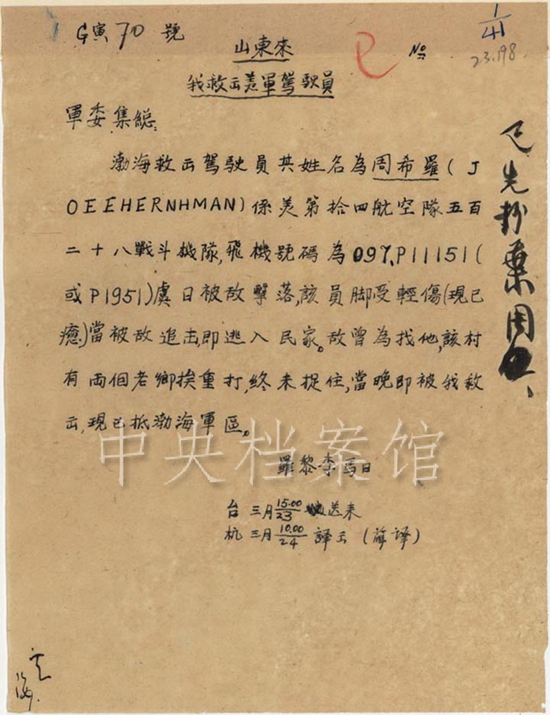 G寅70號
1/41
23.198
山東來
No
我救出美軍駕駛員
軍委,集総,
渤海救出駕駛員其姓名為周希羅(J
OEEHERNHMAN)係美第拾四航空隊五百
二十八戰斗機隊,飛機號碼為097,P11151(
或P1951)虞日被敌擊落,該員脚受輕傷(現已
癒)當被敌追击,即逃入民家。敌曾為找他,該村
有両個老鄉挨重打,終未捉住,當晚即被我救
出,現已抵渤海軍區。
羅黎李馬日
台三月15.00/23 送来
杭三月10.00/24 譯出(薛譯)
先抄葉周
中央档案馆